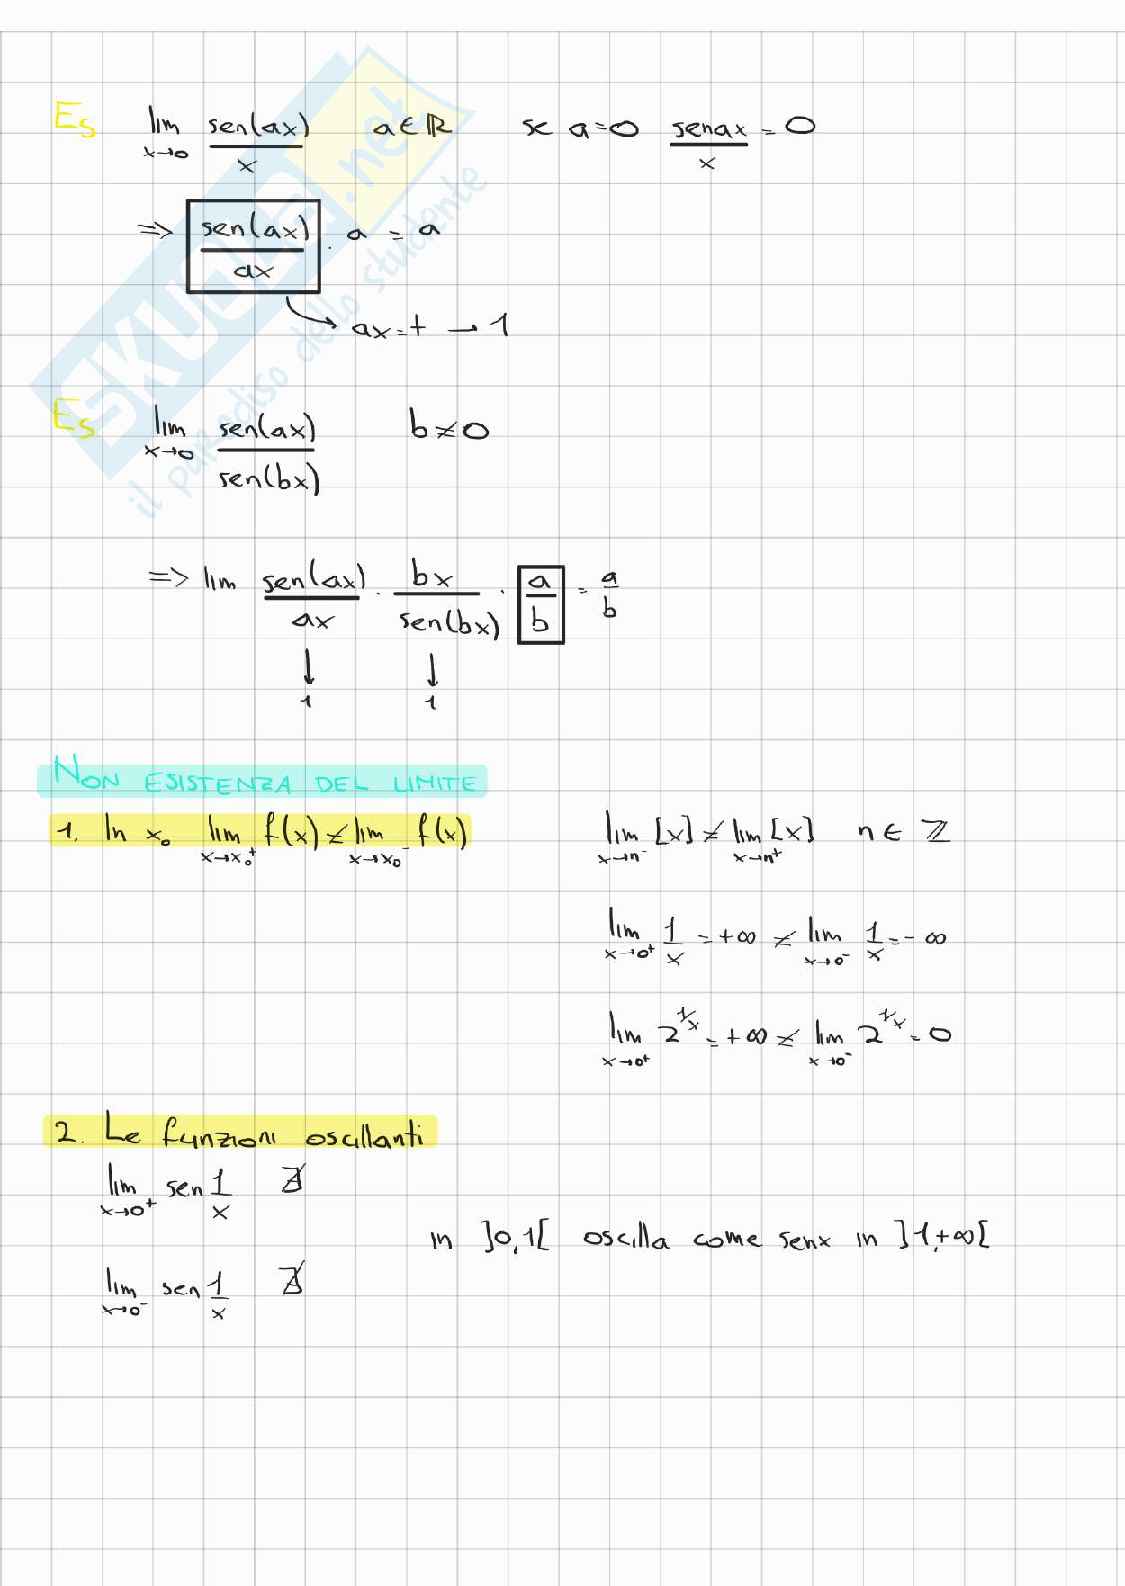 Es lim x→0 sen(ax)/x a∈ℝ se a=0 senax/x = 0
=> sen(ax)/ax · a = a
ax=t → 1
Es lim x→0 sen(ax)/sen(bx) b≠0
=> lim sen(ax)/ax · bx/sen(bx) · a/b = a/b
↓ ↓
1 1
NON ESISTENZA DEL LIMITE
1. In x₀ lim x→x₀⁺ f(x) ≠ lim x→x₀⁻ f(x) lim x→n⁻ [x] ≠ lim x→n⁺ [x] n∈ℤ
lim x→0⁺ 1/x = +∞ ≠ lim x→0⁻ 1/x = -∞
lim x→0⁺ 2^(1/x) = +∞ ≠ lim x→0⁻ 2^(1/x) = 0
2. Le funzioni oscillanti
lim x→0⁺ sen 1/x ∄
in ]0,1[ oscilla come senx in ]1,+∞[
lim x→0⁻ sen 1/x ∄
SKUOLA.net
il paradiso dello studente